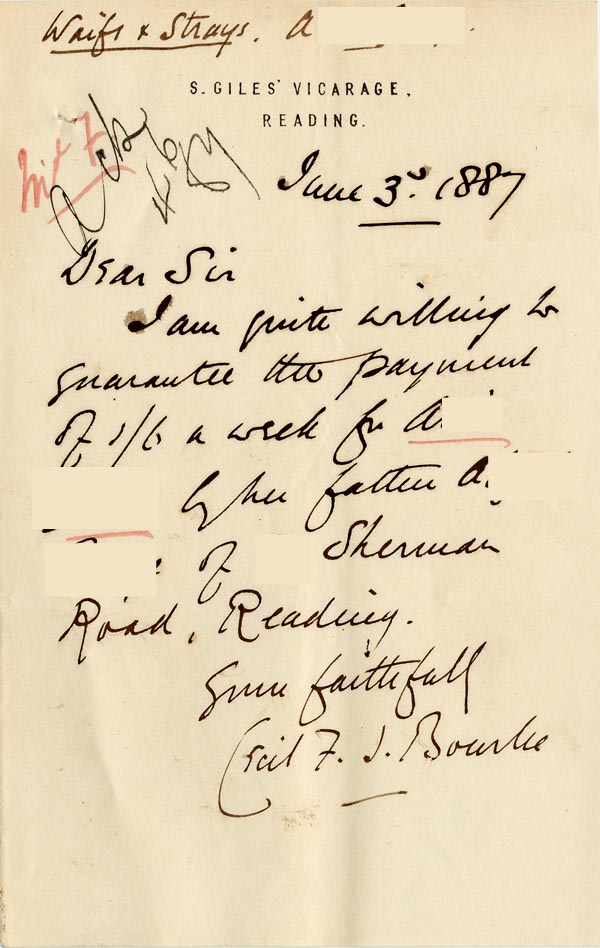 Waifs & Strays. A
S. GILES' VICARAGE,
READING.
Ack
4/6
87
June 3rd. 1887
Dear Sir
I am quite willing to
guarantee the payment
of 2/6 a week for A
by her father A.
of Sherman
Road, Reading.
Yours faithfully
Cecil F. J. Bourke